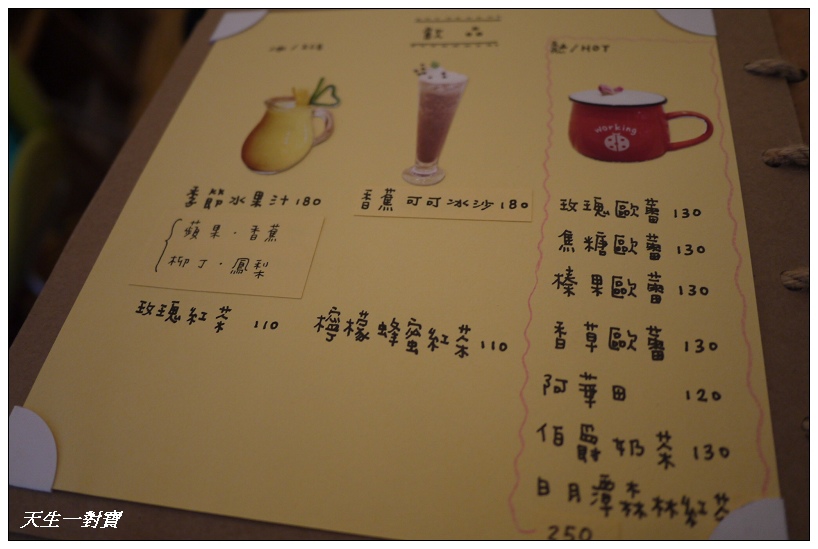 飲品
冰/ICE
季節水果汁 180
蘋果·香蕉
柳丁·鳳梨
香蕉可可冰沙 180
玫瑰紅茶 110
檸檬蜂蜜紅茶 110
熱/HOT
working
玫瑰歐蕾 130
焦糖歐蕾 130
榛果歐蕾 130
香草歐蕾 130
阿華田 120
伯爵奶茶 130
日月潭森林紅茶
250
天生一對寶